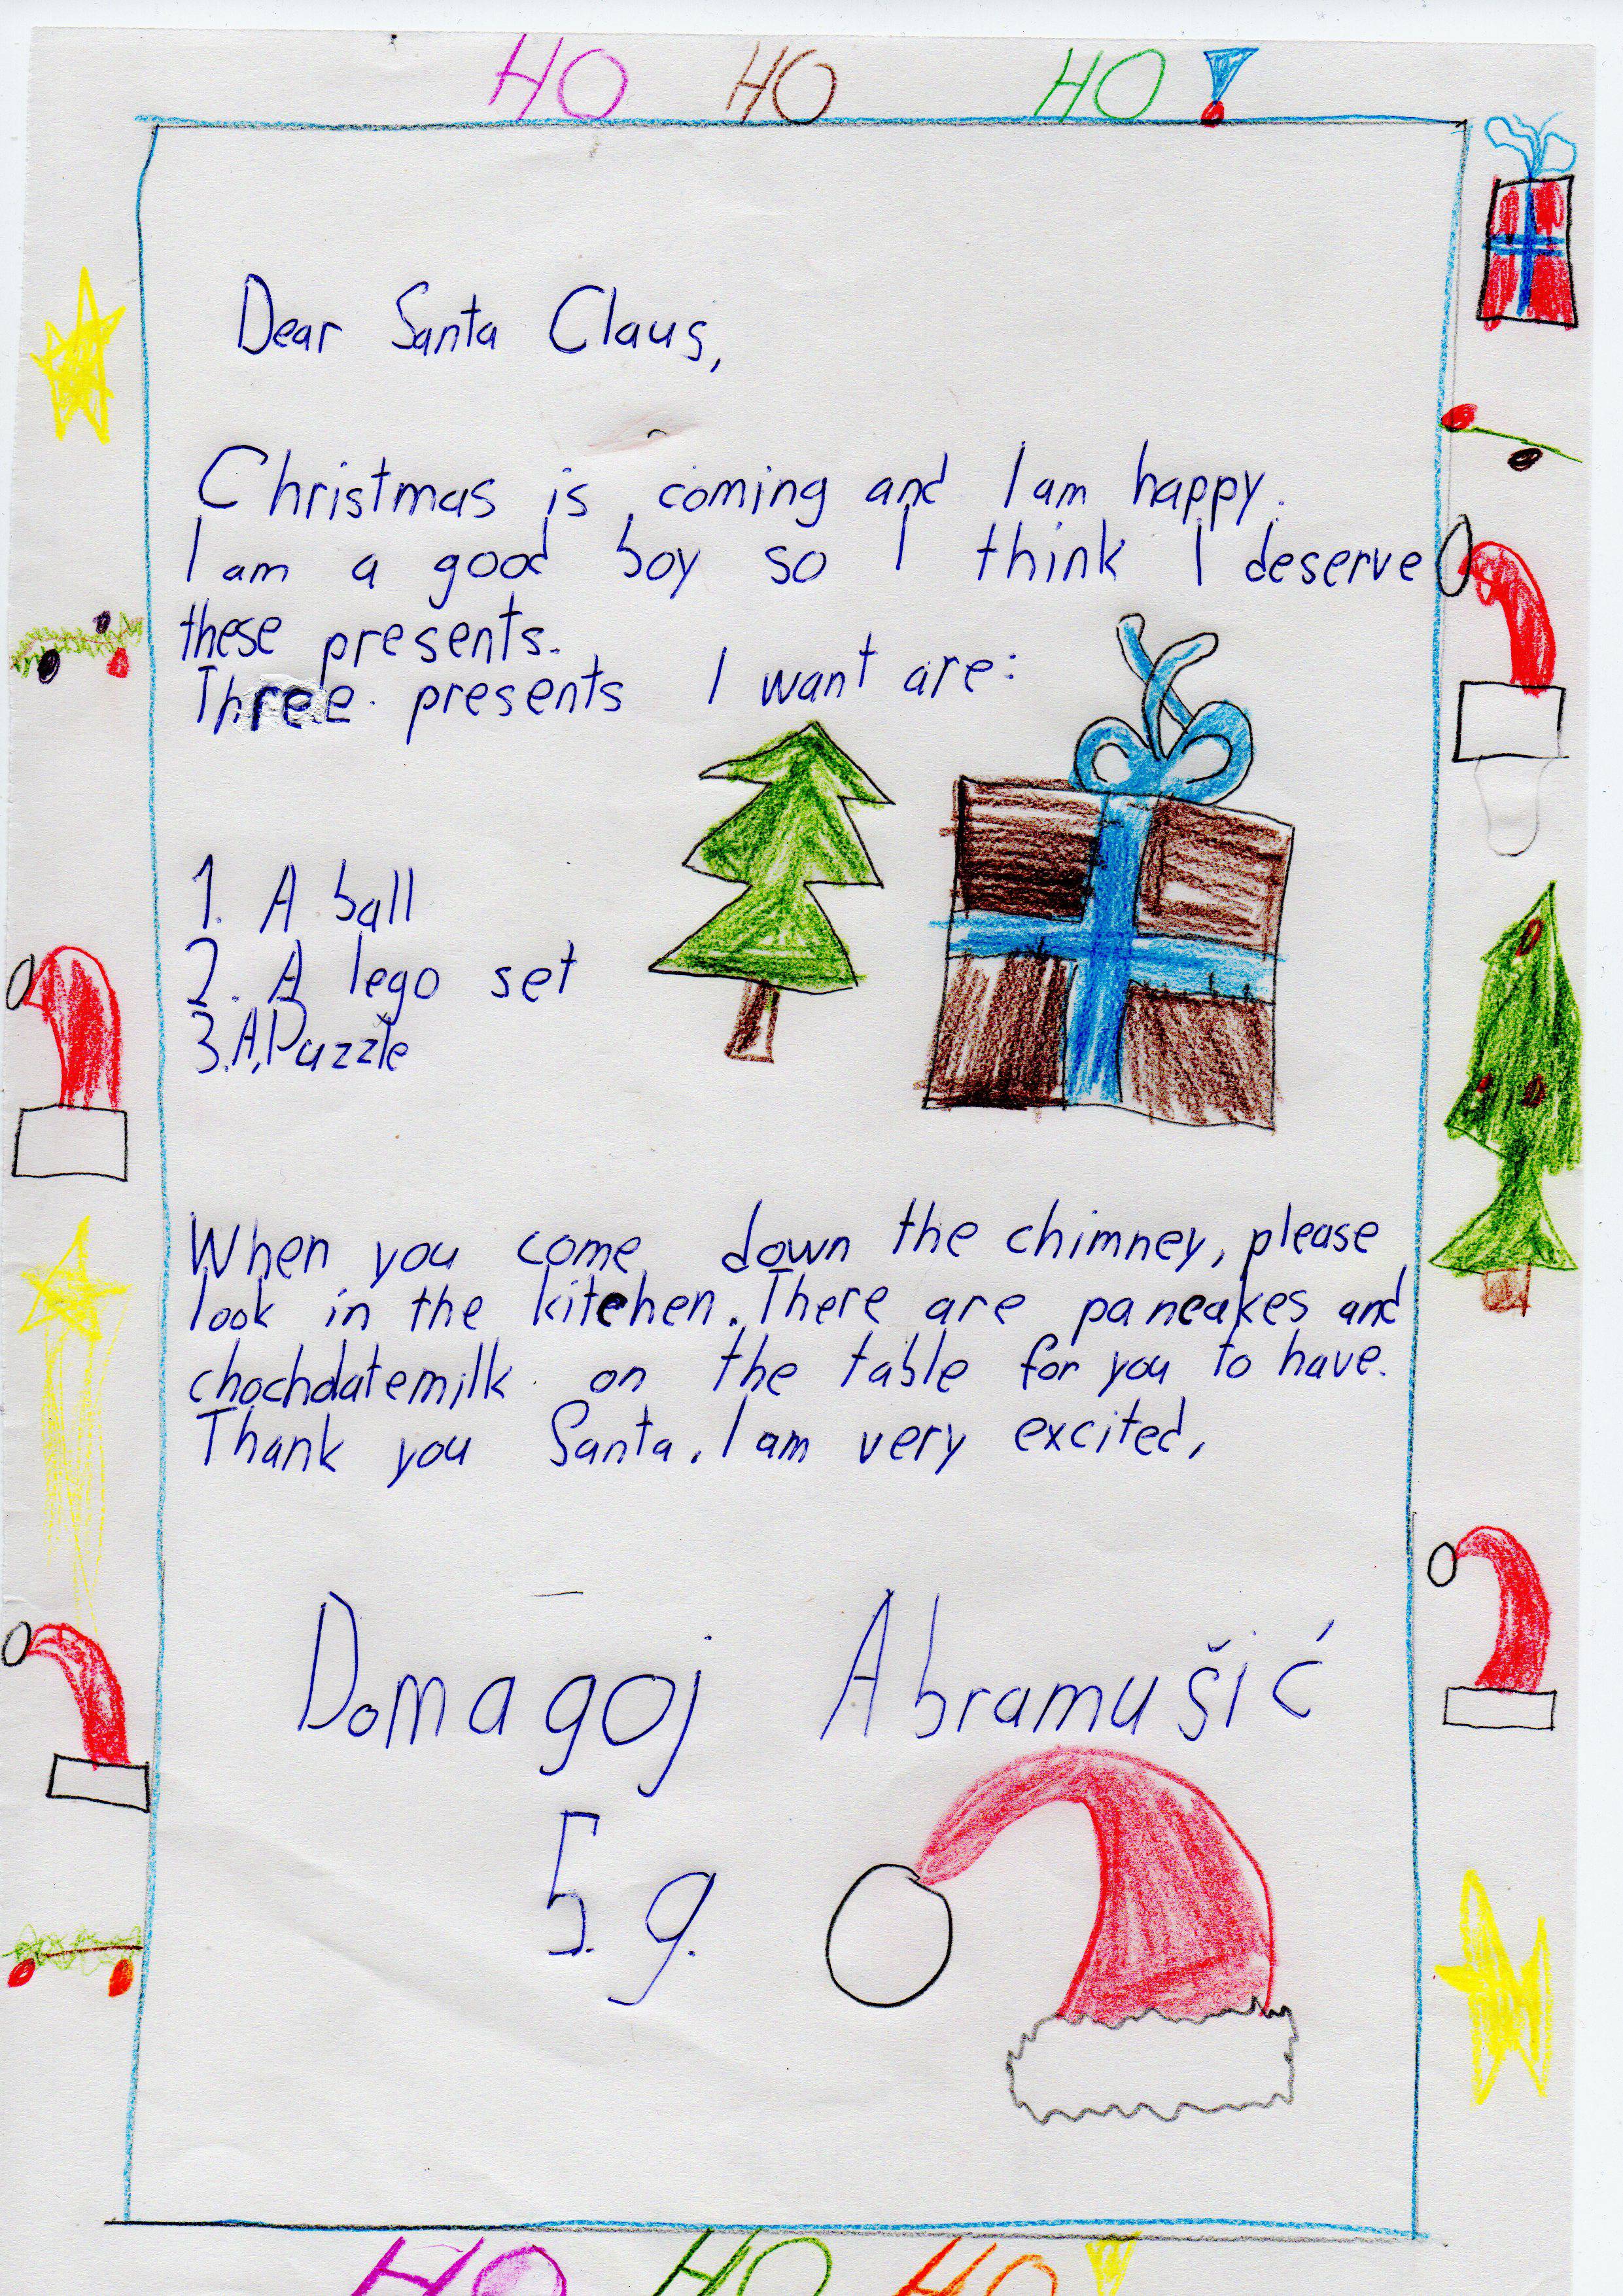 HO HO HO!
Dear Santa Claus,
Christmas is coming and I am happy.
I am a good boy so I think I deserve
these presents.
Three presents I want are:
1. A ball
2. A lego set
3. A Puzzle
When you come down the chimney, please
look in the kitchen. There are pancakes and
chocholatemilk on the table for you to have.
Thank you Santa. I am very excited,
Domagoj Abramušić
5. g.
HO HO HO!